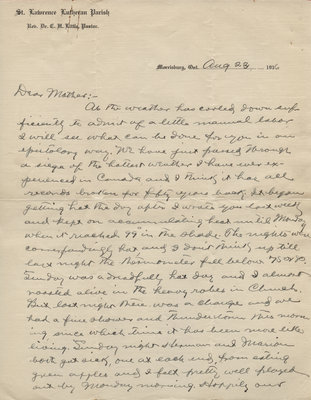 St. Lawrence Lutheran Parish
Rev. Dr. C. H. Little, Pastor.
Morrisburg, Ont. Aug 28 1916
Dear Mother:-
As the weather has cooled down suf-
ficiently to admit of a little manual labor
I will see what can be done for you in an
epistolary way. We have just passed through
a siege of the hottest weather I have ever ex-
perienced in Canada and I think it has all
records broken for fifty years back. It began
getting hot the day after I wrote you last week
and kept on accumulating heat until Monday
when it reached 99 in the shade. The nights were
correspondingly hot and I don't think up till
last night the thermometer fell below 75 or 70.
Sunday was a dreadfully hot day and I almost
roasted alive in the heavy robes in Church.
But last night there was a change and we
had a fine shower and thunderstorm this morn-
ing since which time it has been more like
living. Sunday night Herman and Marion
both got sick, one at each end, from eating
green apples and I felt pretty well played
out by Monday morning. Happily our